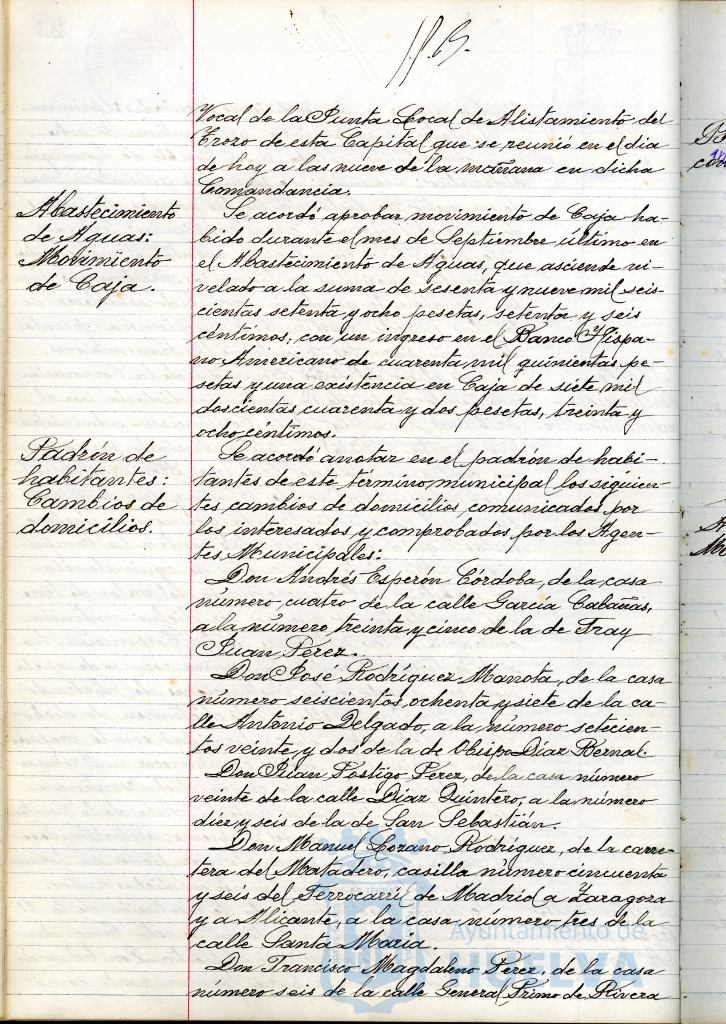 Vocal de la Junta Local de Alistamiento del
Trozo de esta Capital que se reunió en el dia
de hoy a las nueve de la mañana en dicha
Comandancia.
Abastecimiento
de Aguas:
Movimiento
de Caja.
Se acordó aprobar movimiento de Caja ha-
bido durante el mes de Septiembre último en
el Abastecimiento de Aguas, que asciende ni-
velado a la suma de sesenta y nueve mil seis-
cientas setenta y ocho pesetas, setenta y seis
céntimos, con un ingreso en el Banco Hispa-
no Americano de cuarenta mil quinientas pe-
setas y una existencia en Caja de siete mil
doscientas cuarenta y dos pesetas, treinta y
ocho céntimos.
Padrón de
habitantes:
Cambios de
domicilios.
Se acordó anotar en el padrón de habi-
tantes de este término municipal los siguien-
tes cambios de domicilios comunicados por
los interesados y comprobados por los Agen-
tes Municipales:
Don Andrés Esperón Córdoba, de la casa
número cuatro de la calle García Cabañas,
a la número treinta y cinco de la de Fray
Juan Pérez.
Don José Rodríguez Manota, de la casa
número seiscientos ochenta y siete de la ca-
lle Antonio Delgado, a la número setecien-
tos veinte y dos de la de Obispo Díaz Bernal.
Don Juan Postigo Pérez, de la casa número
veinte de la calle Díaz Quintero, a la número
diez y seis de la de San Sebastián.
Don Manuel Lozano Rodríguez, de la carre-
tera del Matadero, casilla número cincuenta
y seis del Ferrocarril de Madrid a Zaragoza
y a Alicante, a la casa número tres de la
calle Santa Maria.
Don Francisco Magdaleno Pérez, de la casa
número seis de la calle General Primo de Rivera
Ayuntamiento de
HUELVA